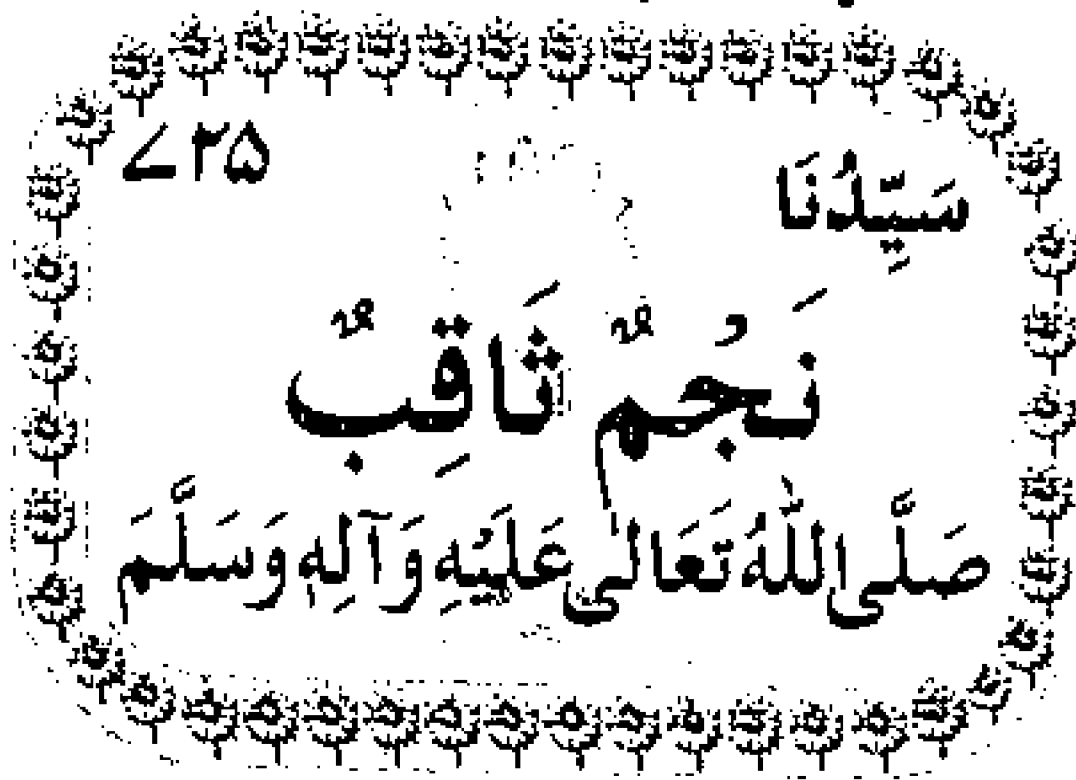 سَيِّدُنَا ۷۳۵
نَجْمٌ ثَاقِبٌ
صَلَّى اللهُ تَعَالٰى عَلَيْهِ وَآلِهٖ وَسَلَّمَ